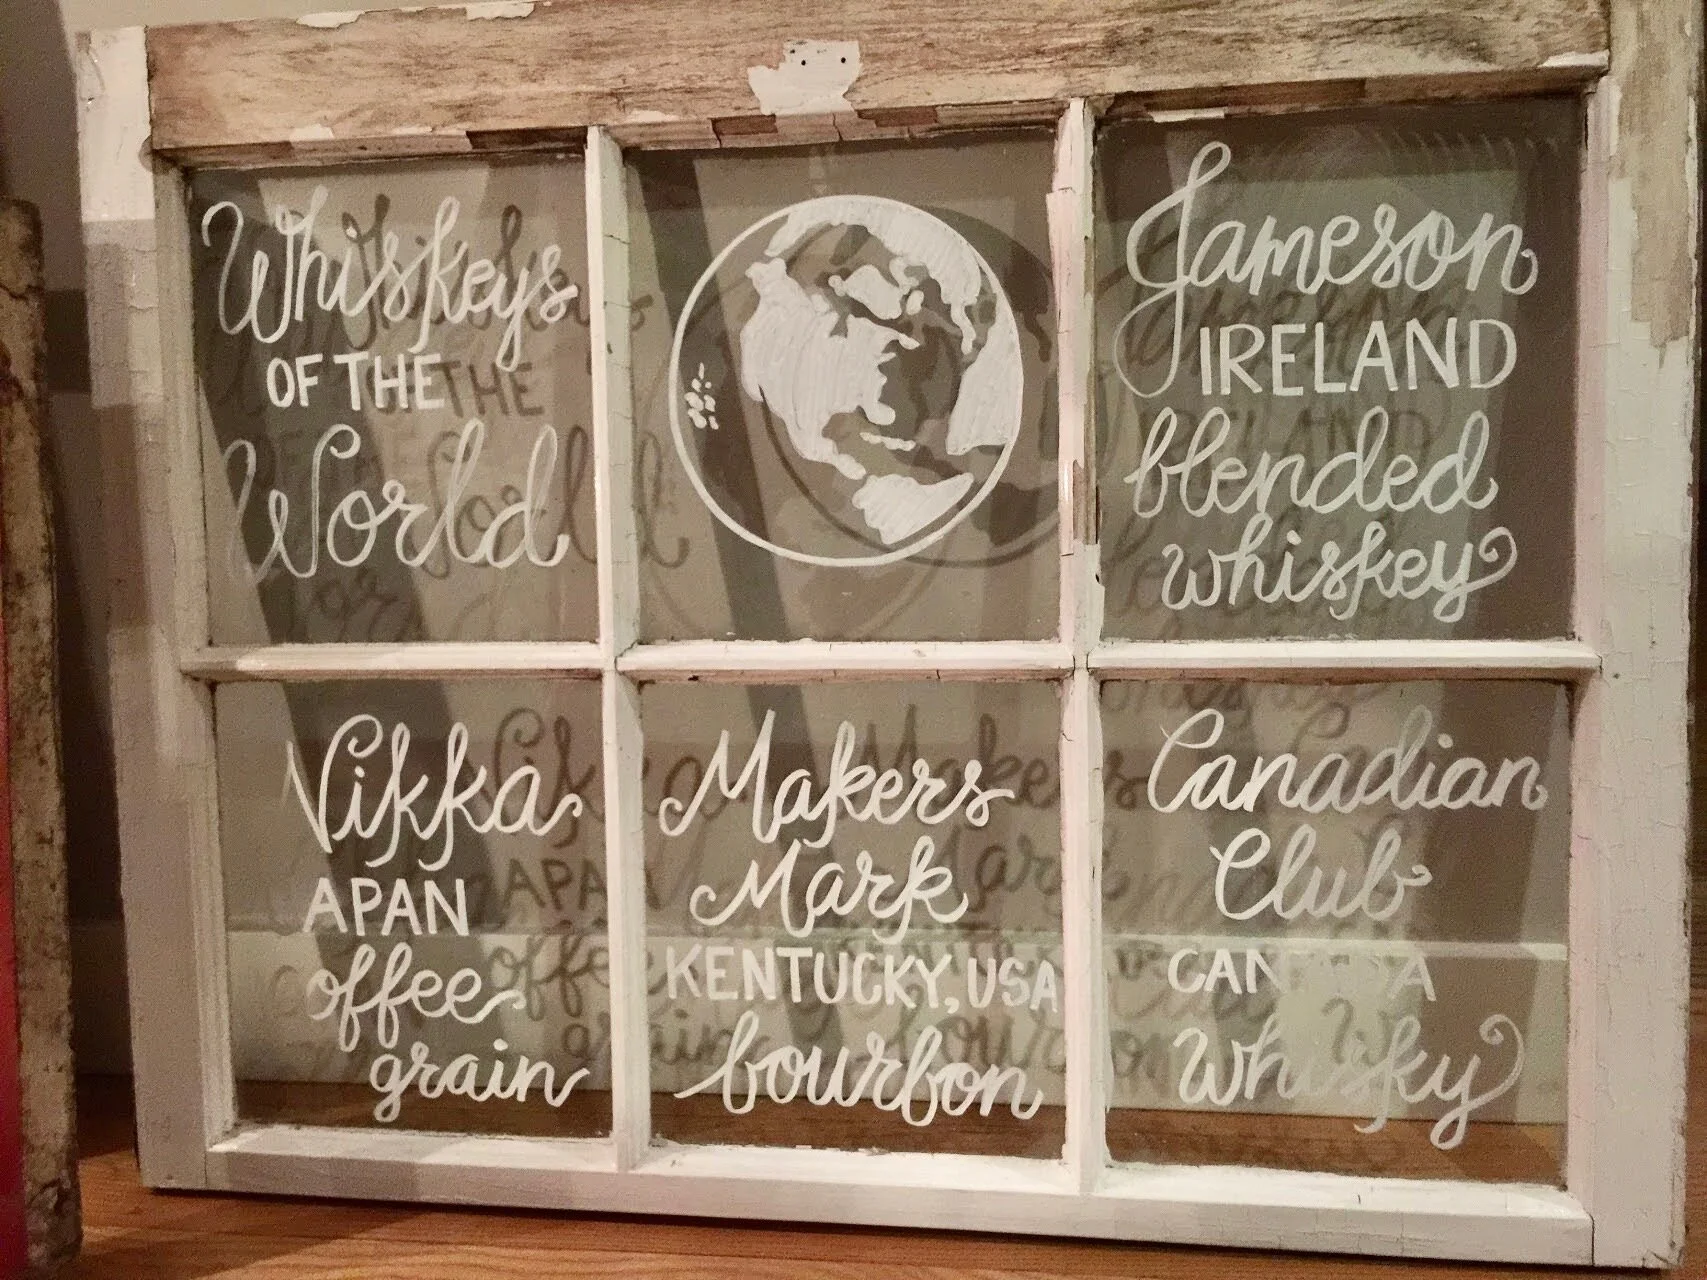 Whiskeys
OF THE
World
Jameson
IRELAND
blended
whiskey
Nikka
APAN
coffee
grain
Makers
Mark
KENTUCKY, USA
bourbon
Canadian
Club
CANADA
Whisky